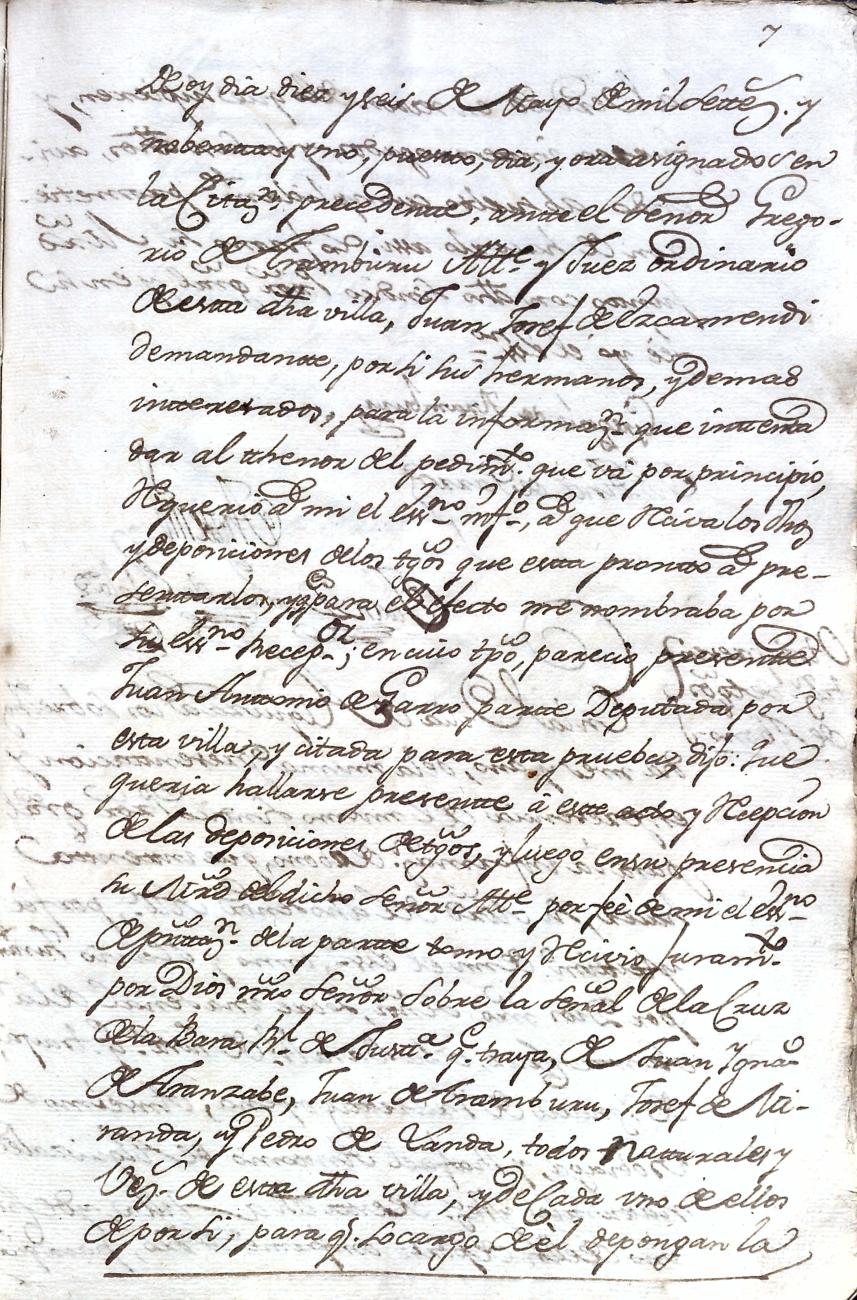 7
De oy dia diez y seis de Mayo de mil settes. y
nobenta y uno, puesto, dia, y ora asignados en
la Citazn. precedente, ante el Señor Grego-
rio de Aramburu Alte. y Juez ordinario
de esta dha villa, Juan Josef de Ascamendi
demandante, por si sus hermanos, y demas
interesados, para la informazn. que intenta
dar al thenor del pedimto. que vá por principio,
Requerió á mi el essno. info., á que Reciva los dhos
y deposiciones de los tgos que esta pronto á pre-
sentarlos, y qe para el efecto me nombraba por
su essno recepor.; en cuio tpo, parecio presente
Juan Antonio de Garro parte Deputada por
esta villa, y citada para esta prueba, dijo: Que
queria hallarse presente á este acto y Recepcion
de las deposiciones de tgos, y luego en su presencia
su Mrd del dicho Señor Alte. por feé de mi el essno
de pnttazn. de la parte tomo y Recivio Juramto.
por Dios nro Señor sobre la señal de la Cruz
de la Bara Rl. de Justa. qe. traya, de Juan Ignao
de Aranzabe, Juan de Aramburu, Josef de Mi-
randa, y Pedro de Landa, todos Naturales y
Vezs. de esta dha villa, y de Cada uno de ellos
de por si, para qe. so cargo de él depongan la